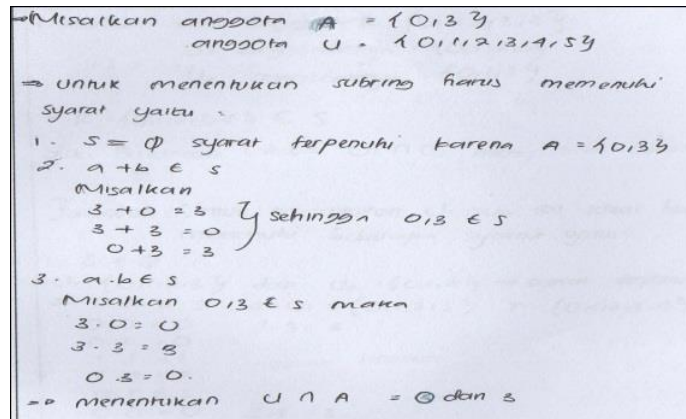 → Misalkan anggota A = {0,3}
anggota U = {0,1,2,3,4,5}
⇒ untuk menentukan subring harus memenuhi
syarat yaitu :
1. S = ϕ syarat terpenuhi karena A = {0,3}
2. a + b ∈ S
Misalkan
3 + 0 = 3
3 + 3 = 0 } sehingga 0,3 ∈ S
0 + 3 = 3
3. a . b ∈ S
Misalkan 0,3 ∈ S maka
3 . 0 = 0
3 . 3 = 3
0 . 3 = 0.
⇒ menentukan U ∩ A = 0 dan 3